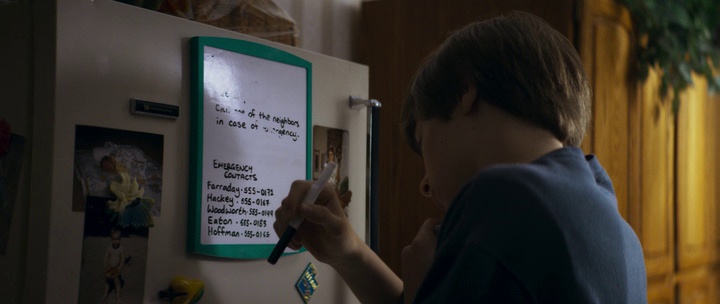 of the neighbors
in case of
EMERGENCY
CONTACTS
Farraday · 555-0172
Hackey · 555-0167
Woodworth · 555-0149
Eaton · 555-0155
Hoffman · 555-0165